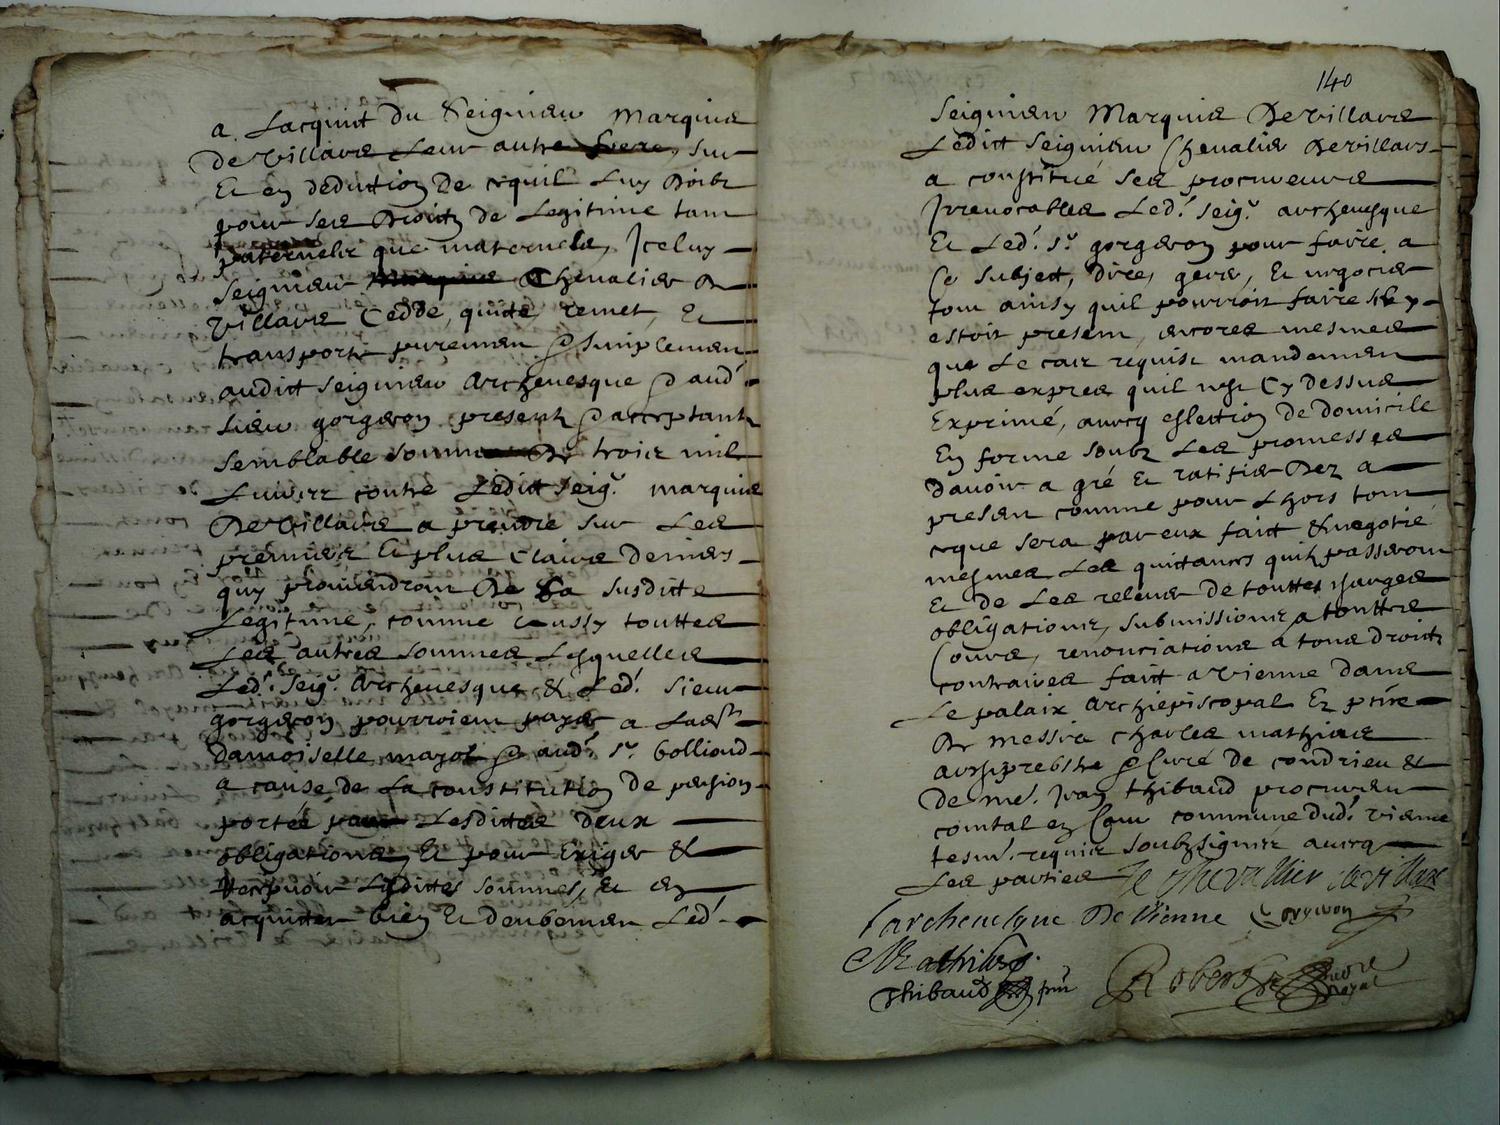 a Lacquict du Seigneur Marquis
de Villars Leur autre frere, sur
Et en deduction de ce quil Luy doibt
pour ses droictz de Legitime tant
paternelle que maternelle, Iceluy
Seigneur Marquis Chevalier de
villars Cedde, quicte, remet, Et
transporte purement & simplement
audict Seigneur Archevesque & aud.
sieur gorgeron presentz & acceptantz
semblable somme de trois mil
Livres contre Ledict Seigr. marquis
De Villars a prendre sur Les
premiers Et plus Claire deniers
quy proviendront De Sa susditte
Legitime, comme Aussy touttes
Les autres sommes Lesquelles
Led. Seigr. Archevesque & Led. sieur
gorgeron pourroient payer a Lad.
damoiselle mazot & aud. sr. bolliond
a cause de La constitution de pension
portée par Lesdittes deux
obligations, Et pour Exiger &
Recepvoir Lesdittes sommes, Et en
acquitter bien Et deubement Led.
140
Seigneur Marquis De Villars
Ledict Seigneur Chevalier De Villars
a constitué ses procureurs
Irrevocables Led. Seigr. archevesque
Et Led. sr. gorgeron pour faire a
Ce subject, dire, gerer, Et negocier
tout ainsy quil pourroit faire sil y
estoit present, encores mesmes
que Le cas requist mandement
plus expres quil nest Cy dessus
Exprimé, avecq eslection de domicile
En forme soubz Les promesses
davoir a gré Et ratifier Dez a
present comme pour Lhors tout
ce que sera par eux faict & negotié
mesmes Les quittances quilz passeront
Et de Les relever de touttes charges
obligations, submissions a touttes
Cours, renonciations a tous droictz
contraires faict a Vienne dans
Le palais Archiepiscopal Ez pnce
De messire charles mathias
archiprebstre & Curé de condrieu Et
De me. Jean thibaud procureur
comtal ez Cour commune dud. vienne
tesm. requis soubzsignez avecq
Les parties Le chevallier de villars
Larchevesque De Vienne Gorgeron
Mathias
Thibaud pnt Robert
royal